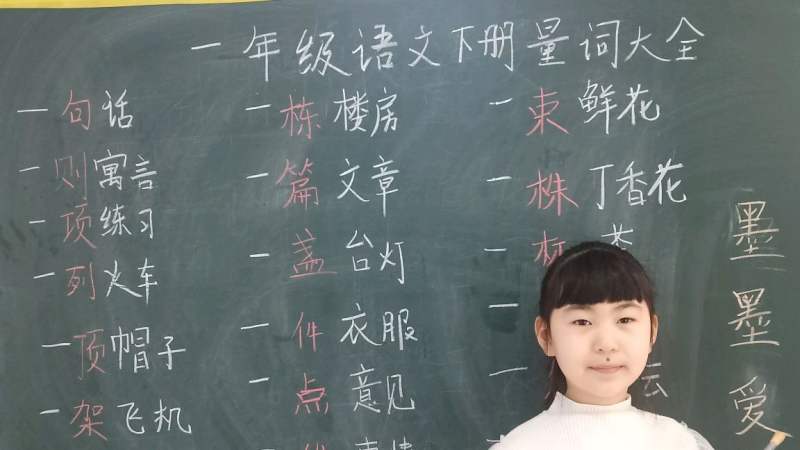 一年级语文下册量词大全
一句话
一则寓言
一项练习
一列火车
一顶帽子
一架飞机
一栋楼房
一篇文章
一盏台灯
一件衣服
一点意见
一束鲜花
一株丁香花
一
一
一 云
墨墨爱